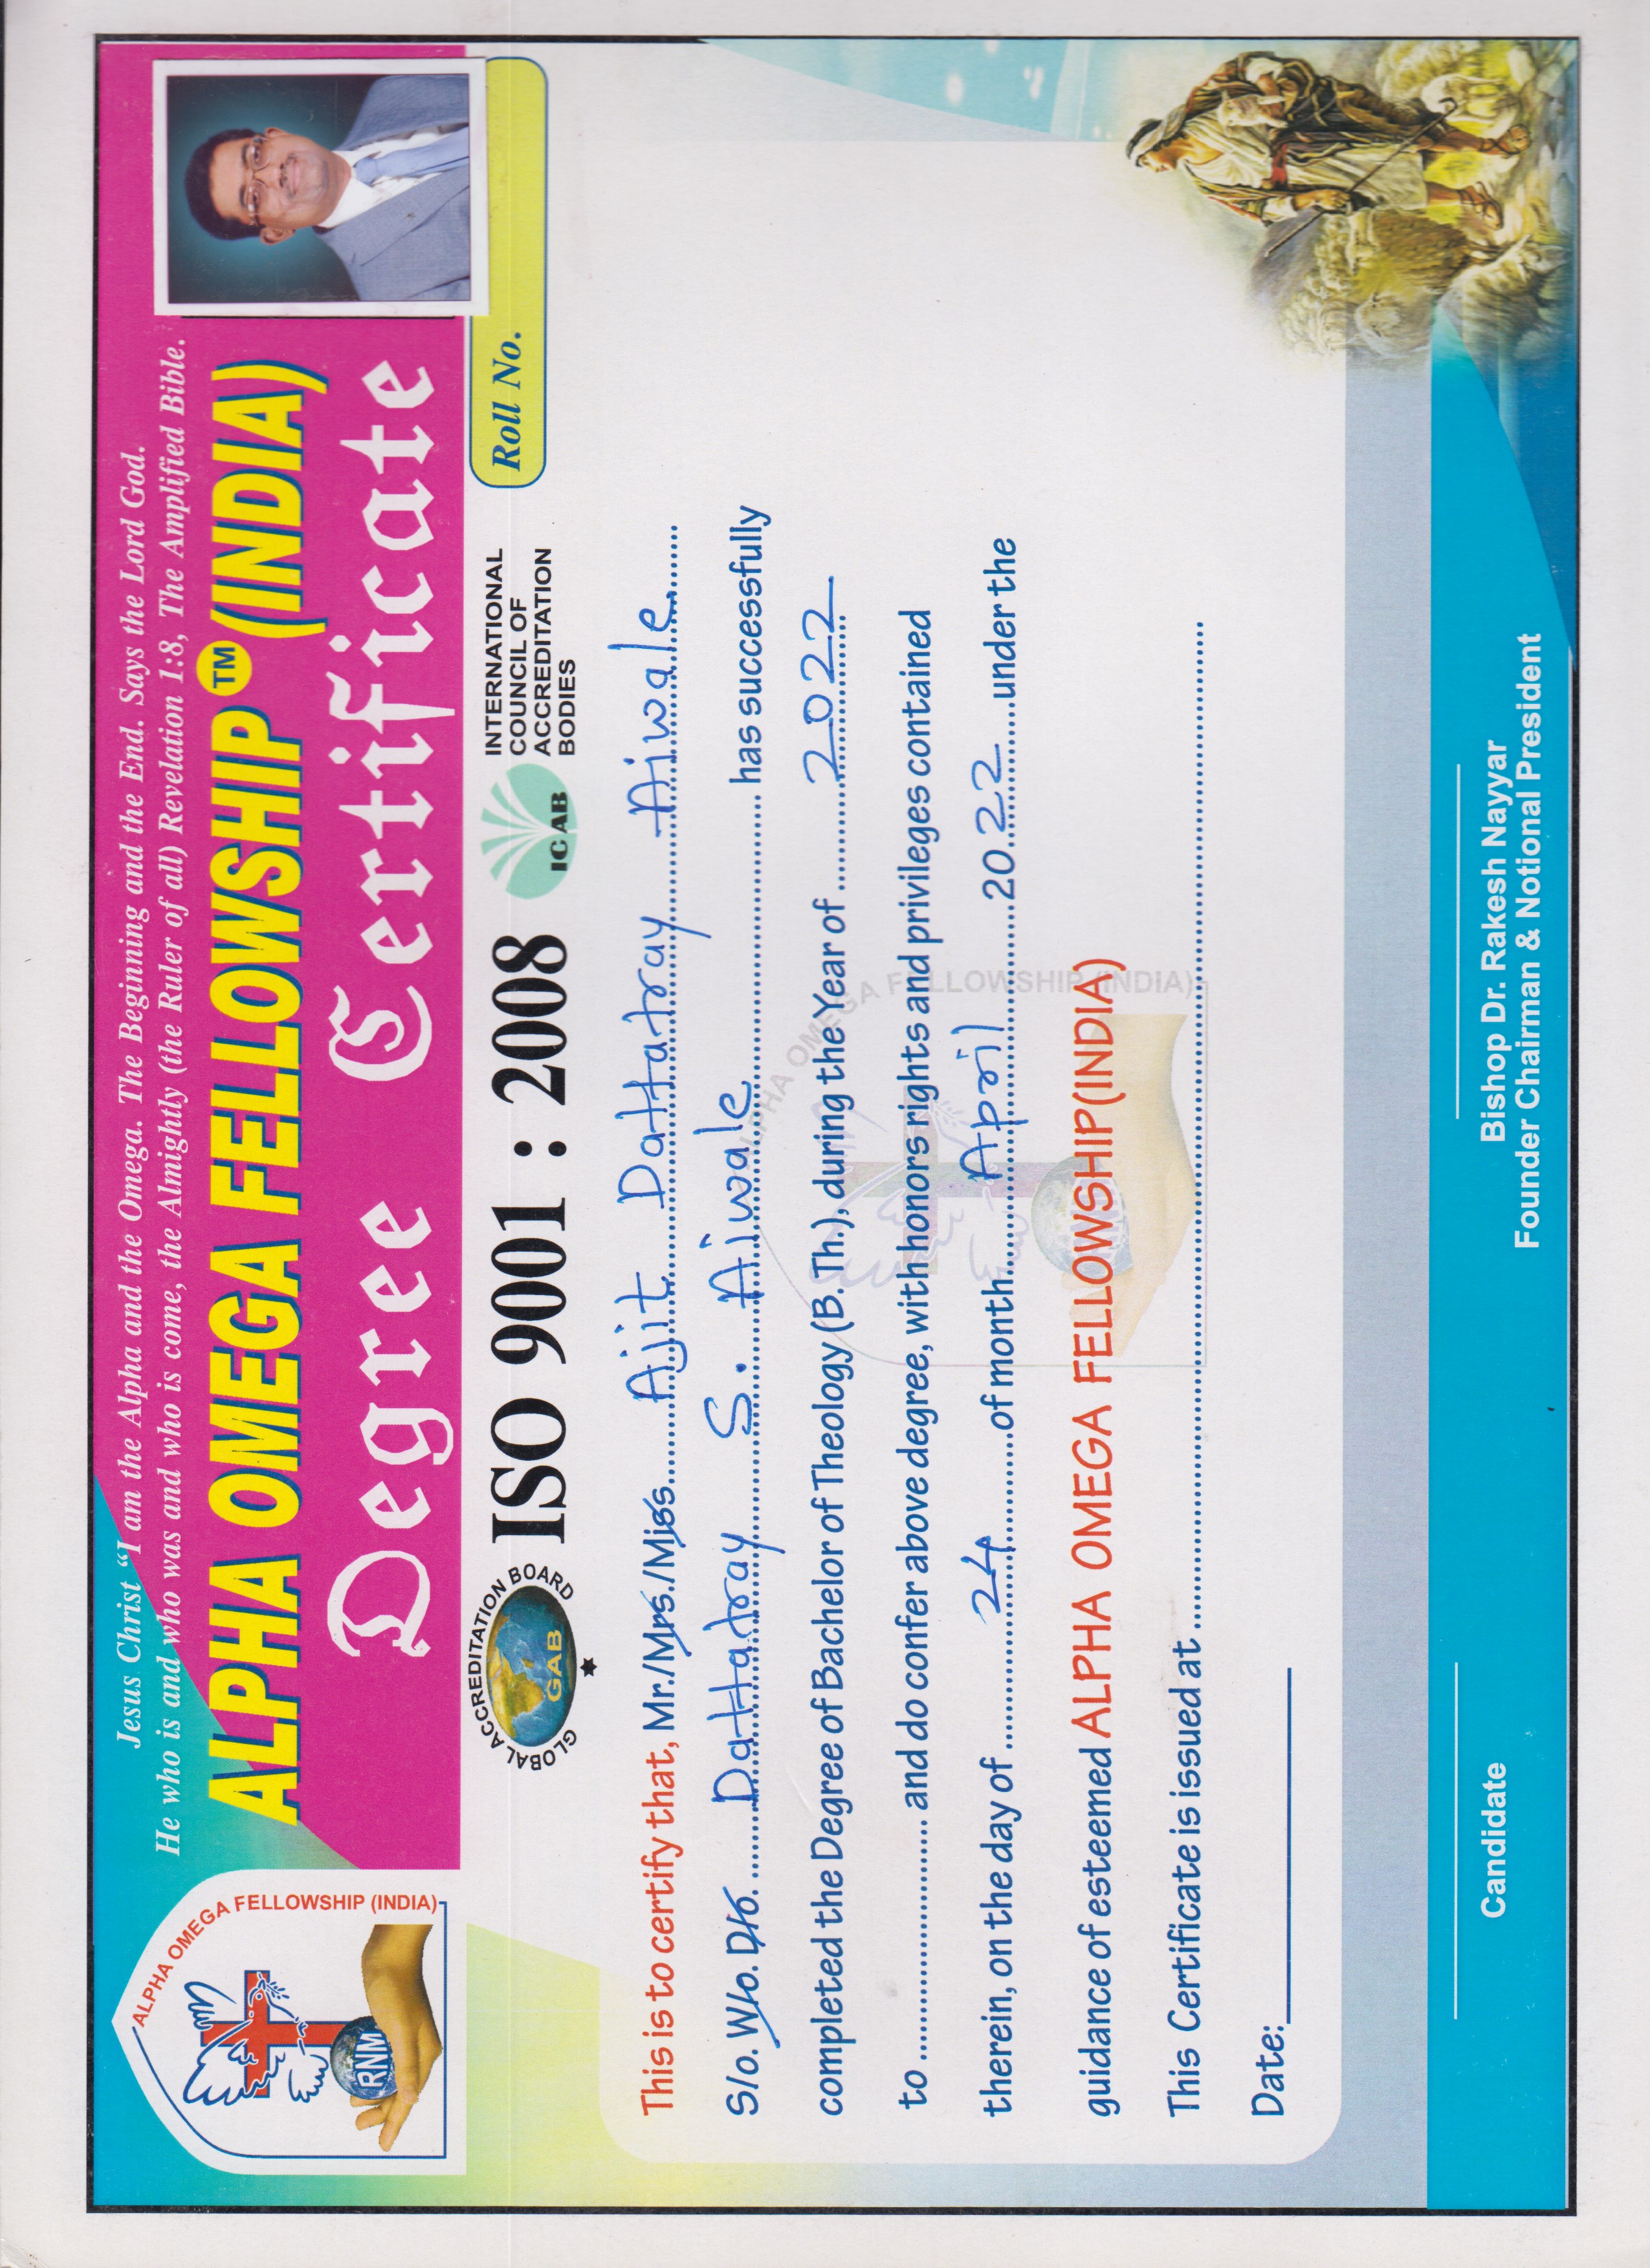 Jesus Christ “I am the Alpha and the Omega. The Beginning and the End. Says the Lord God.
He who is and who was and who is come, the Almightly (the Ruler of all) Revelation 1:8, The Amplified Bible.
ALPHA OMEGA FELLOWSHIP (INDIA)
RNM
ALPHA OMEGA FELLOWSHIP™(INDIA)
Degree Certificate
GLOBAL ACCREDITATION BOARD
GAB
ISO 9001 : 2008
IC AB
INTERNATIONAL
COUNCIL OF
ACCREDITATION
BODIES
Roll No.
This is to certify that, Mr./Mrs./Miss........Ajit Dattatray Aiwale........
S/o. W/o. D/o. ........Dattatray S. Aiwale........ has successfully
completed the Degree of Bachelor of Theology (B. Th.), during the Year of ........2022
to ........................ and do confer above degree, with honors rights and privileges contained
therein, on the day of ........24........of month........April........20.22....under the
guidance of esteemed ALPHA OMEGA FELLOWSHIP(INDIA)
This Certificate is issued at ........................
Date:____________
ALPHA OMEGA FELLOWSHIP (INDIA)
Candidate
Bishop Dr. Rakesh Nayyar
Founder Chairman & Notional President